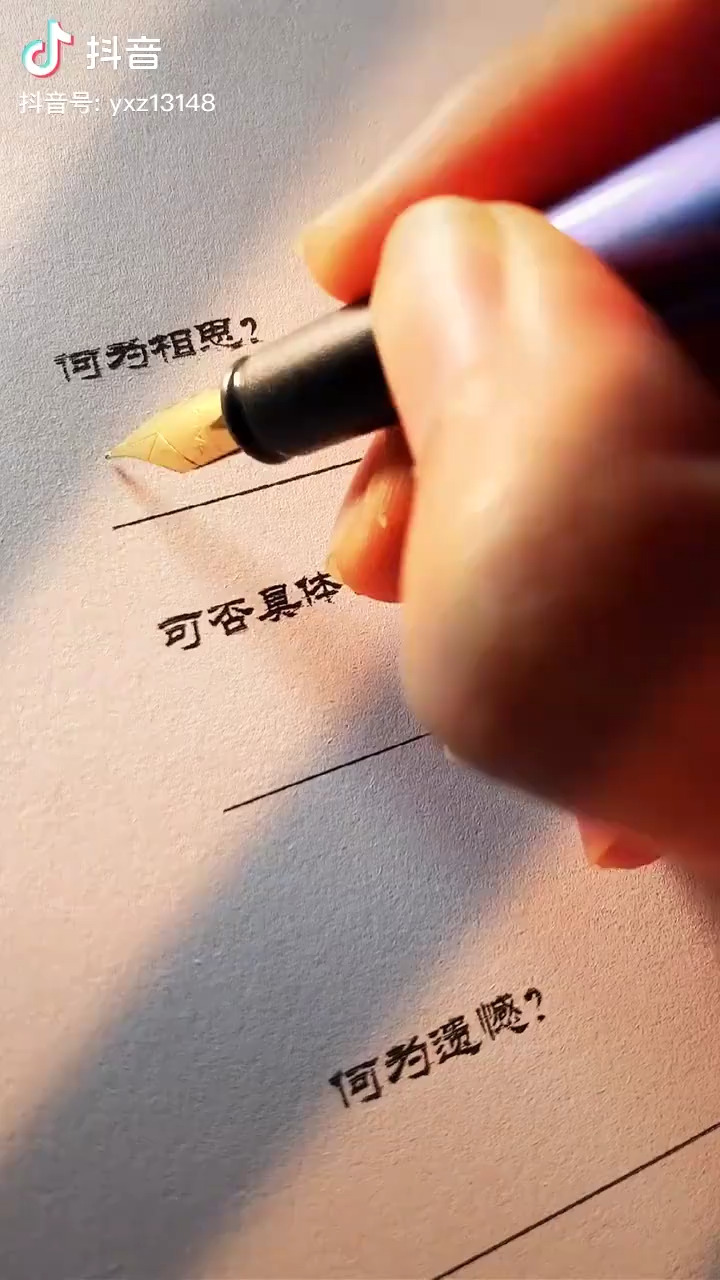 抖音
抖音号: yxz13148
何为相思?
可否具体
何为遗憾?